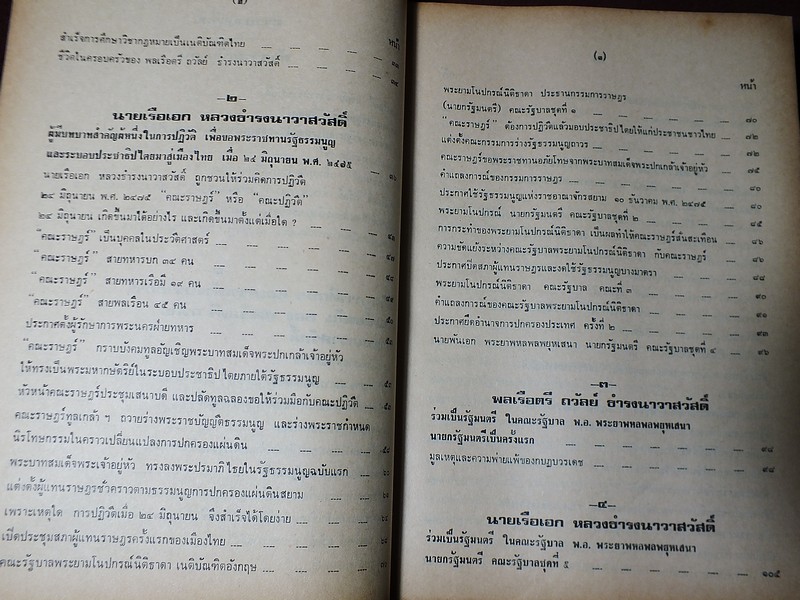 สำเร็จการศึกษาวิชากฎหมายเป็นเนติบัณฑิตไทย
หน้า
ชีวิตในครอบครัวของ พลเรือตรี ถวัลย์ ธำรงนาวาสวัสดิ์
—๒—
นายเรือเอก หลวงธำรงนาวาสวัสดิ์
ผู้มีบทบาทสำคัญผู้หนึ่งในการปฏิวัติ เพื่อขอพระราชทานรัฐธรรมนูญ
และระบอบประชาธิปไตยมาสู่เมืองไทย เมื่อ ๒๔ มิถุนายน พ.ศ. ๒๔๗๕
นายเรือเอก หลวงธำรงนาวาสวัสดิ์ ถูกชวนให้ร่วมคิดการปฏิวัติ
๒๔ มิถุนายน พ.ศ. ๒๔๗๕ “คณะราษฎร์” หรือ “คณะปฏิวัติ”
๒๔ มิถุนายน เกิดขึ้นมาได้อย่างไร และเกิดขึ้นมาตั้งแต่เมื่อใด ?
“คณะราษฎร์” เป็นบุคคลในประวัติศาสตร์
“คณะราษฎร์” สายทหารบก ๓๔ คน
“คณะราษฎร์” สายทหารเรือมี ๑๙ คน
“คณะราษฎร์” สายพลเรือน ๔๕ คน
ประกาศตั้งผู้รักษาการพระนครฝ่ายทหาร
“คณะราษฎร์” กราบบังคมทูลอัญเชิญพระบาทสมเด็จพระปกเกล้าเจ้าอยู่หัว
ให้ทรงเป็นพระมหากษัตริย์ในระบอบประชาธิปไตยภายใต้รัฐธรรมนูญ
หัวหน้าคณะราษฎร์ประชุมเสนาบดี และปลัดทูลฉลองขอให้ร่วมมือกับคณะปฏิวัติ
คณะราษฎร์ทูลเกล้า ฯ ถวายร่างพระราชบัญญัติธรรมนูญ และร่างพระราชกำหนด
นิรโทษกรรมในคราวเปลี่ยนแปลงการปกครองแผ่นดิน
พระบาทสมเด็จพระเจ้าอยู่หัว ทรงลงพระปรมาภิไธยในรัฐธรรมนูญฉบับแรก
แต่งตั้งผู้แทนราษฎรชั่วคราวตามธรรมนูญการปกครองแผ่นดินสยาม
เพราะเหตุใด การปฏิวัติเมื่อ ๒๔ มิถุนายน จึงสำเร็จได้โดยง่าย
เปิดประชุมสภาผู้แทนราษฎรครั้งแรกของเมืองไทย
คณะรัฐบาลพระยามโนปกรณ์นิติธาดา เนติบัณฑิตอังกฤษ
หน้า
พระยามโนปกรณ์นิติธาดา ประธานกรรมการราษฎร
(นายกรัฐมนตรี) คณะรัฐบาลชุดที่ ๑ ๗๐
“คณะราษฎร์” ต้องการปฏิวัติแล้วมอบประชาธิปไตยให้แก่ประชาชนชาวไทย ๗๒
แต่งตั้งคณะกรรมการร่างรัฐธรรมนูญถาวร
คณะราษฎร์ขอพระราชทานอภัยโทษจากพระบาทสมเด็จพระปกเกล้าเจ้าอยู่หัว ๗๕
คำแถลงการณ์ของกรรมการราษฎร ๘๐
ประกาศใช้รัฐธรรมนูญแห่งราชอาณาจักรสยาม ๑๐ ธันวาคม พ.ศ. ๒๔๗๕ ๘๐
พระยามโนปกรณ์ นายกรัฐมนตรี คณะรัฐบาลชุดที่ ๒ ๘๕
การกระทำของพระยามโนปกรณ์นิติธาดา เป็นผลทำให้คณะราษฎร์สั่นสะเทือน ๘๖
ความขัดแย้งระหว่างคณะรัฐบาลพระยามโนปกรณ์นิติธาดา กับคณะราษฎร์ ๘๖
ประกาศปิดสภาผู้แทนราษฎรและงดใช้รัฐธรรมนูญบางมาตรา ๘๘
พระยามโนปกรณ์นิติธาดา คณะรัฐบาล คณะที่ ๓ ๙๐
คำแถลงการณ์ของคณะรัฐบาลพระยามโนปกรณ์นิติธาดา ๙๑
ประกาศยึดอำนาจการปกครองประเทศ ครั้งที่ ๒ ๙๓
นายพันเอก พระยาพหลพลพยุหเสนา นายกรัฐมนตรี คณะรัฐบาลชุดที่ ๔ ๙๖
—๓—
พลเรือตรี ถวัลย์ ธำรงนาวาสวัสดิ์
ร่วมเป็นรัฐมนตรี ในคณะรัฐบาล พ.อ. พระยาพหลพลพยุหเสนา
นายกรัฐมนตรีเป็นครั้งแรก ๙๘
มูลเหตุและความพ่ายแพ้ของกบฏบวรเดช ๙๘
—๔—
นายเรือเอก หลวงธำรงนาวาสวัสดิ์
ร่วมเป็นรัฐมนตรี ในคณะรัฐบาล พ.อ. พระยาพหลพลพยุหเสนา
นายกรัฐมนตรี คณะรัฐบาลชุดที่ ๕ ๑๐๕